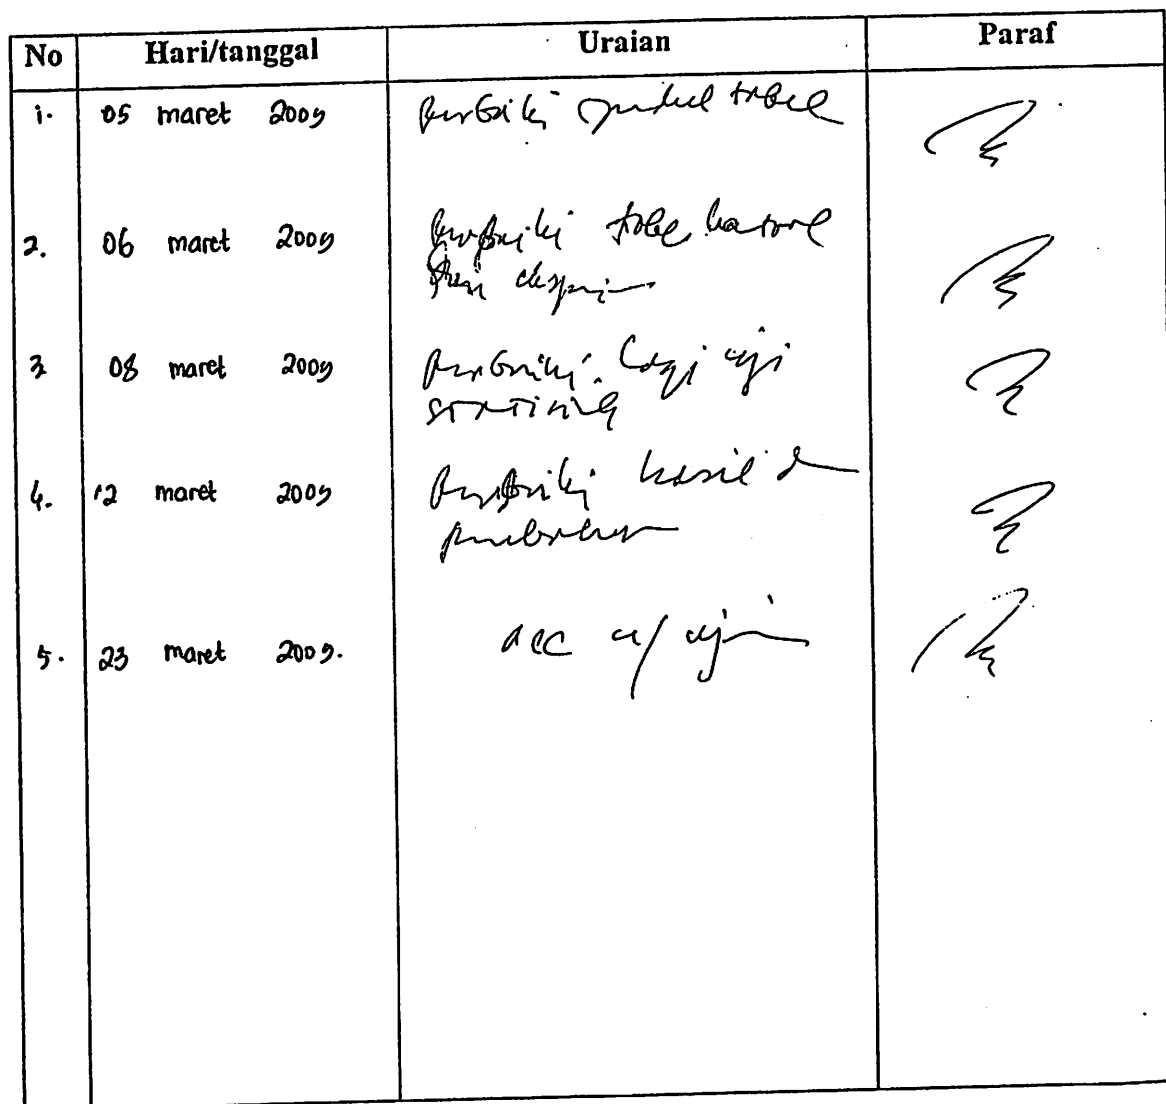 No Hari/tanggal Uraian Paraf
1. 05 maret 2009 Perbaiki judul tabel
2. 06 maret 2009 Perbaiki tabel
3 08 maret 2009 Perbaiki lagi uji
statistik
4. 12 maret 2009 Perbaiki hasil dan
pembahasan
5. 23 maret 2009. acc u/ ujian